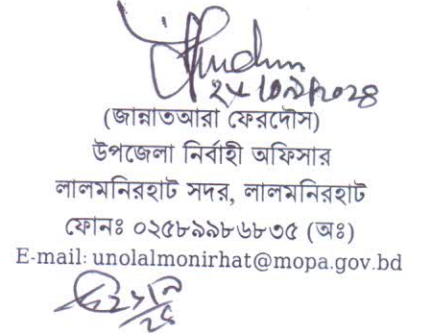 (জান্নাতআরা ফেরদৌস)
উপজেলা নির্বাহী অফিসার
লালমনিরহাট সদর, লালমনিরহাট
ফোনঃ ০২৫৮৯৯৮৬৮৩৫ (অঃ)
E-mail: unolalmonirhat@mopa.gov.bd